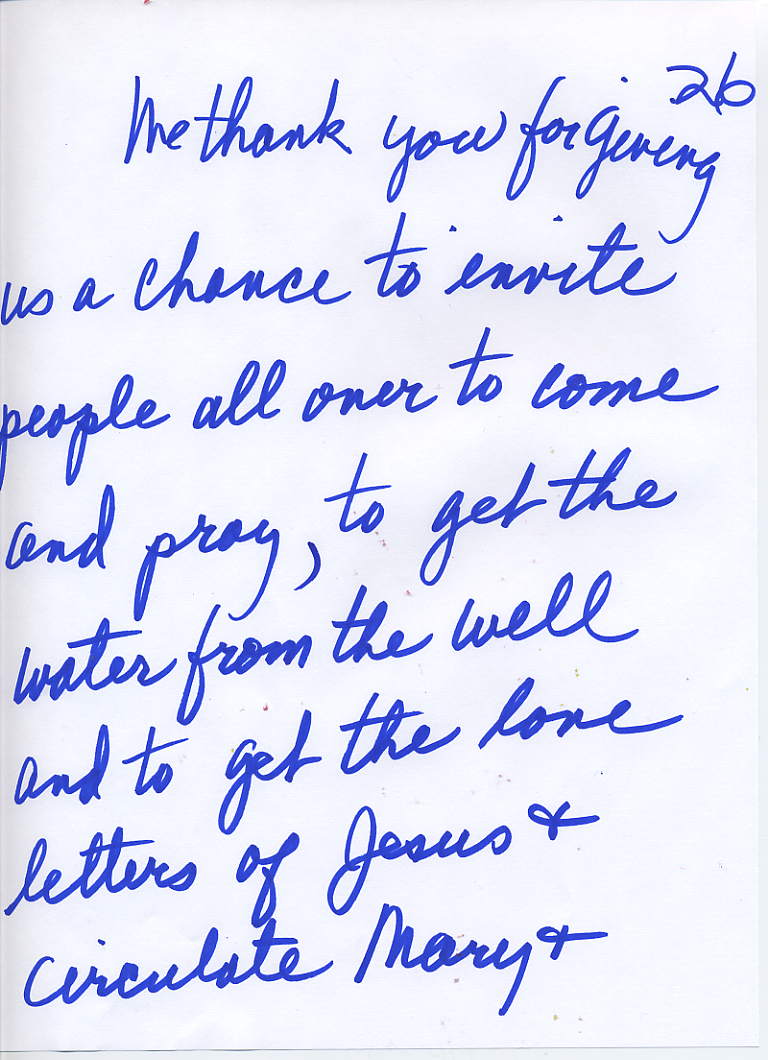 26
We thank you for giving
us a chance to invite
people all over to come
and pray, to get the
water from the well
and to get the love
letters of Jesus +
circulate Mary +